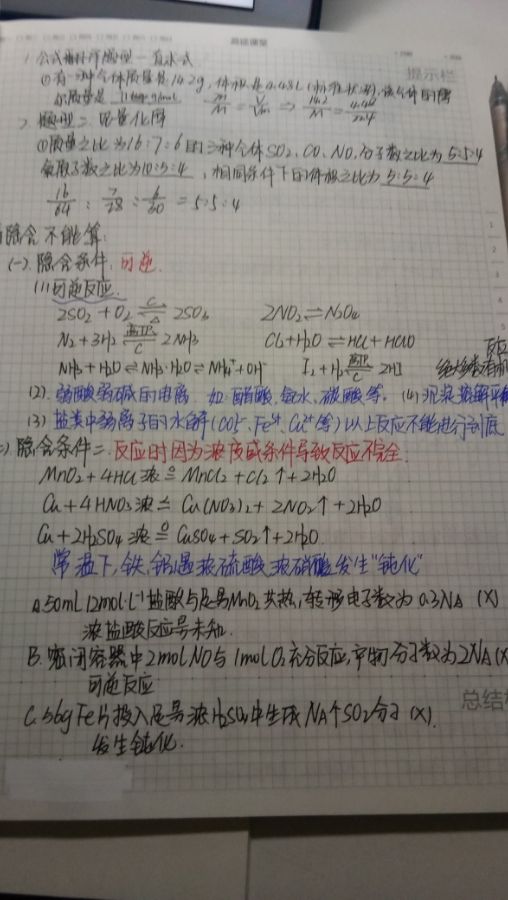 提示栏
(1)有一种气体质量是14.2g,体积是4.48L(标准状况),该气体的摩
尔质量是
(1)质量之比为16:7:6的三种气体SO2、CO、NO,分子数之比为5:5:4
氧原子数之比为10:5:4,相同条件下的体积之比为5:5:4
16/64 : 7/28 : 6/30 = 5:5:4
隐含不能算:
(一)隐含条件:可逆
(1)可逆反应
2SO2 + O2 ⇌ 2SO3 2NO2⇌N2O4
N2 + 3H2 ⇌ 2NH3 Cl2+H2O⇌HCl+HClO
NH3 + H2O ⇌ NH3·H2O ⇌ NH4+ + OH- I2 + H2 ⇌ 2HI
(2). 弱酸弱碱的电离 如:醋酸、氨水、碳酸等. (4)沉淀溶解平
(3) 盐类中弱离子的水解 以上反应不能进行到底
隐含条件二:反应时因为浓度或条件导致反应不完全.
MnO2 + 4HCl浓 ≜ MnCl2 + Cl2↑ + 2H2O
Cu + 4HNO3浓 = Cu(NO3)2 + 2NO2↑ + 2H2O
Cu + 2H2SO4浓 ≜ CuSO4 + SO2↑ + 2H2O
常温下,铁、铝遇浓硫酸、浓硝酸发生"钝化"
A.50mL 12mol·L-1盐酸与足量MnO2共热,转移电子数为0.3NA (X)
浓盐酸反应
B.密闭容器中2molNO与1molO2充分反应,产物分子数为2NA(X
可逆反应
C.56gFe片投入足量浓H2SO4中生成NA个SO2分子(X).
发生钝化.
总结